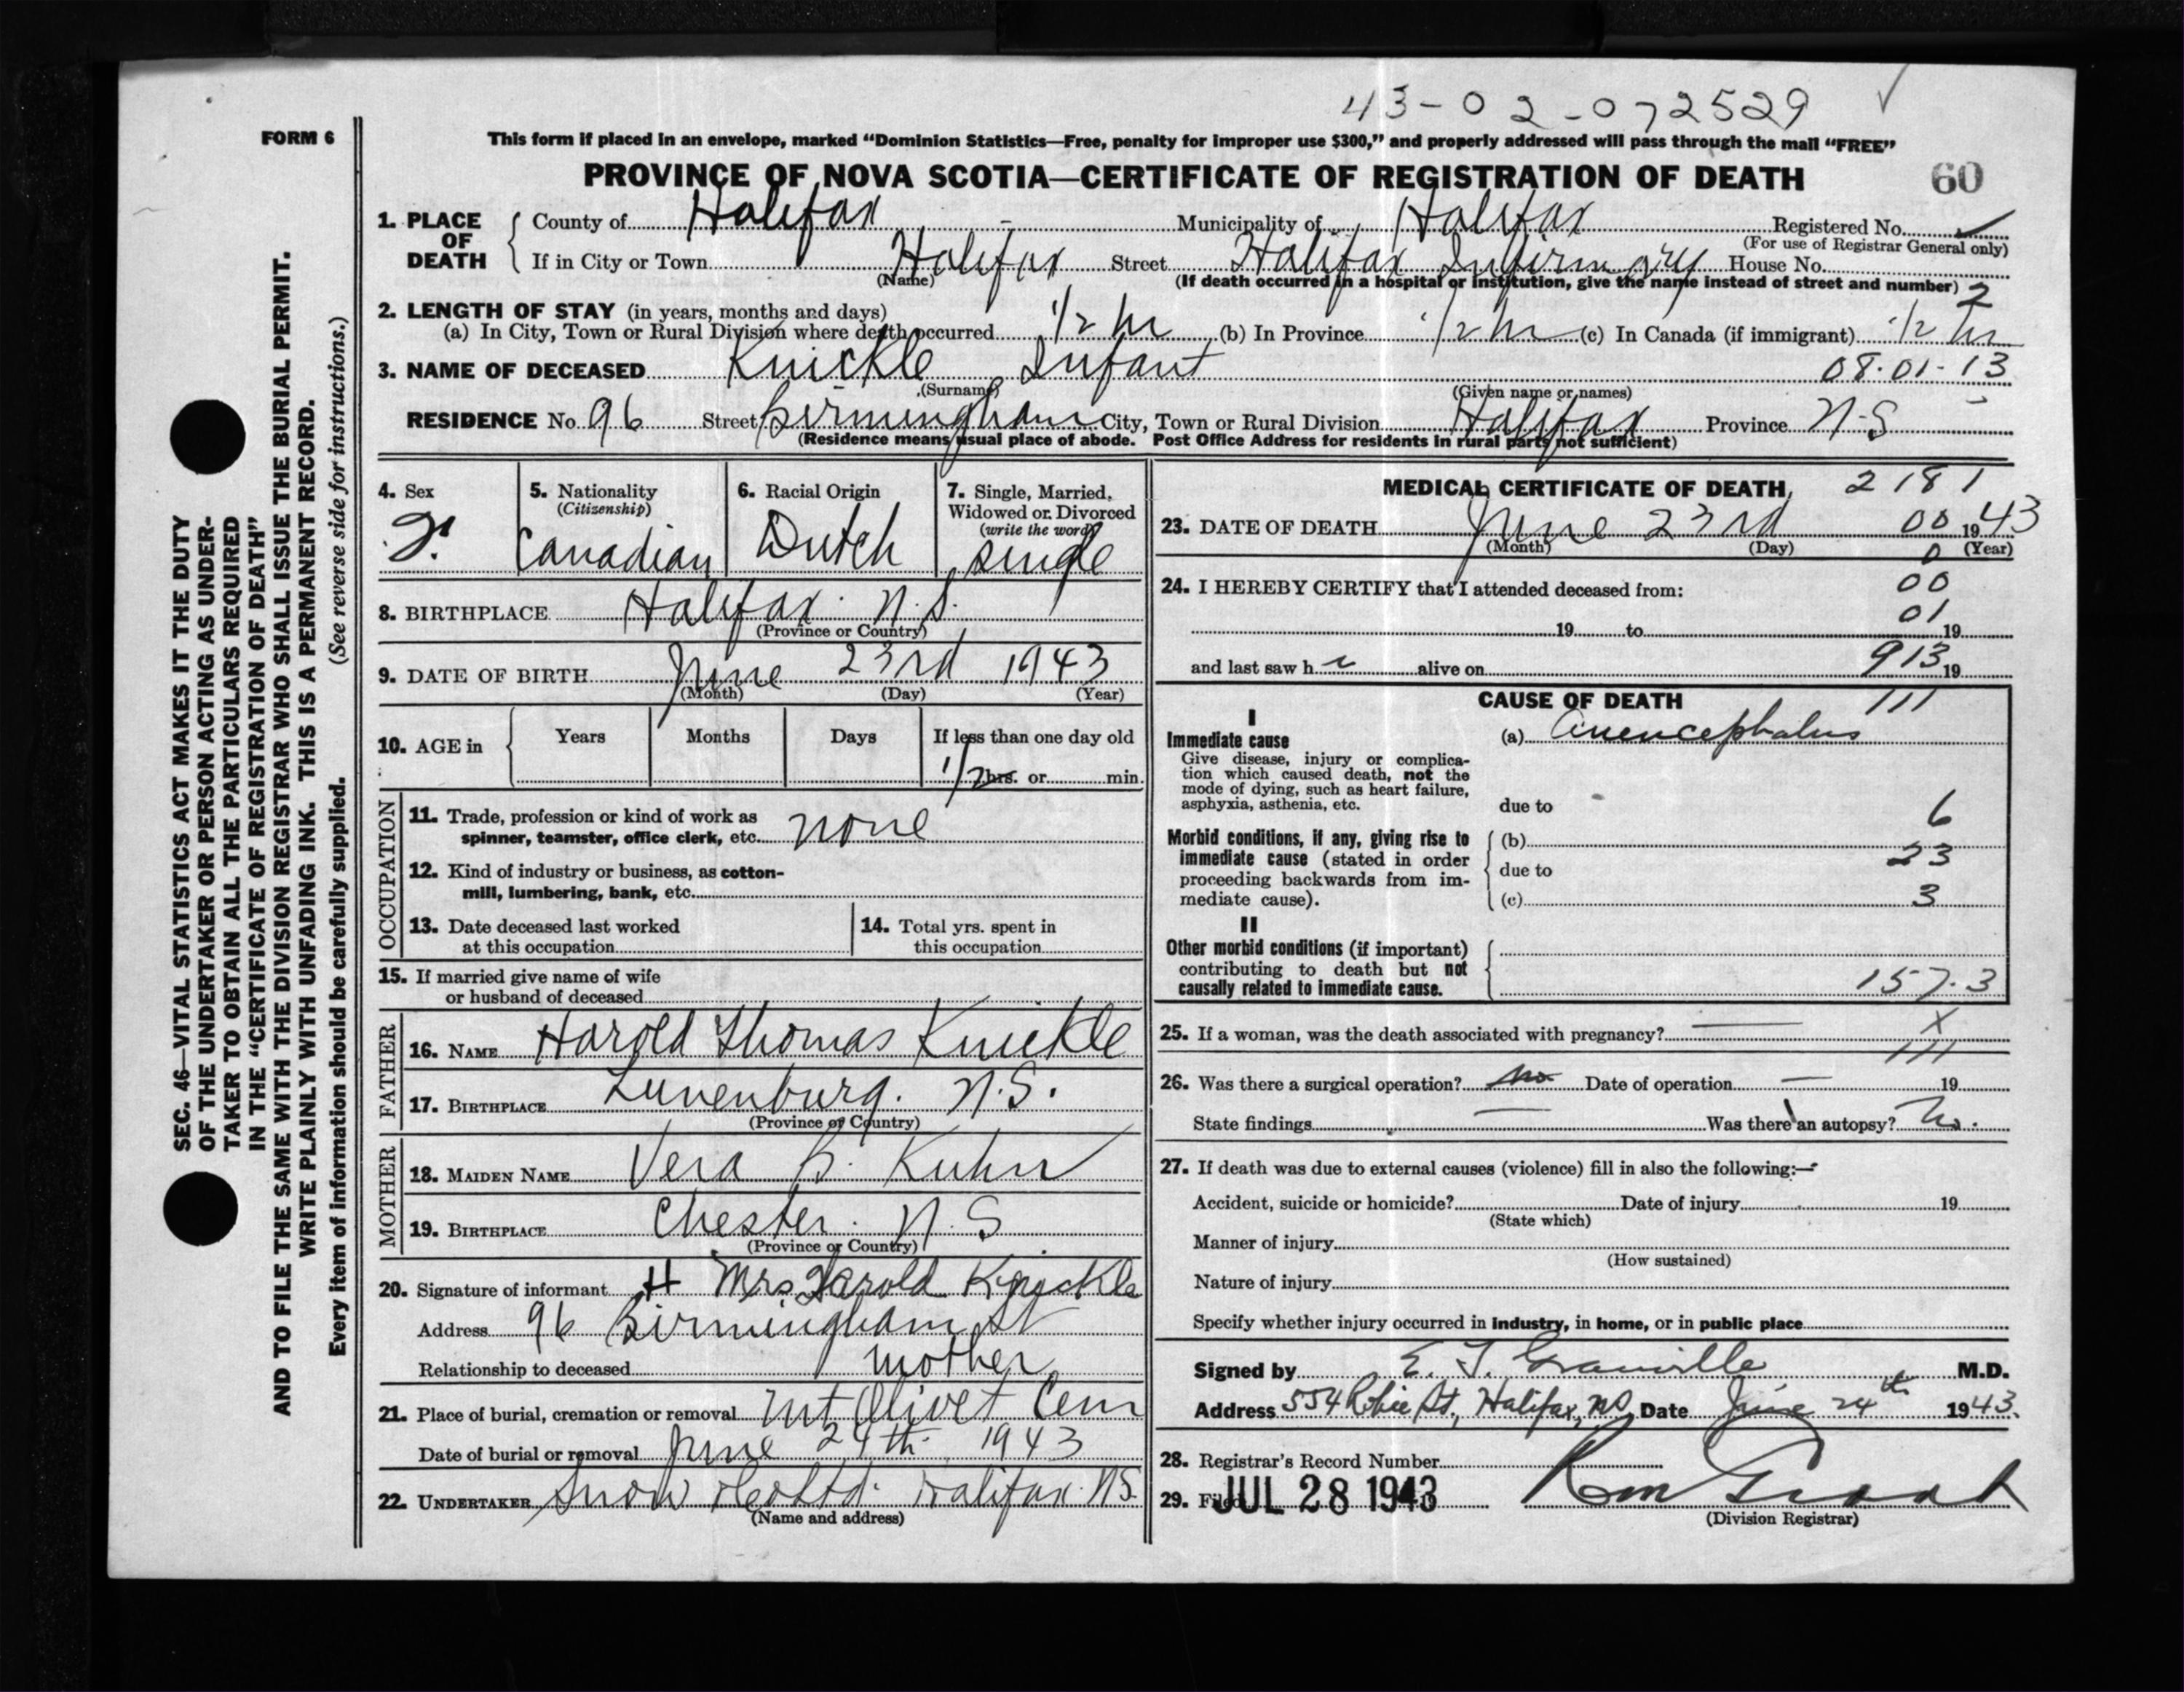 43-02-072529
FORM 6
This form if placed in an envelope, marked “Dominion Statistics—Free, penalty for improper use $300,” and properly addressed will pass through the mail “FREE”
PROVINCE OF NOVA SCOTIA—CERTIFICATE OF REGISTRATION OF DEATH 60
1. PLACE OF DEATH County of Halifax Municipality of Halifax Registered No.
(For use of Registrar General only)
If in City or Town Halifax Street Halifax Infirmary House No.
(Name) (If death occurred in a hospital or institution, give the name instead of street and number) 2
2. LENGTH OF STAY (in years, months and days)
(a) In City, Town or Rural Division where death occurred 1/2 hr (b) In Province 1/2 hr (c) In Canada (if immigrant) 1/2 hr
3. NAME OF DECEASED Knickle Infant 08-01-13
(Surname) (Given name or names)
RESIDENCE No. 96 Street Birmingham City, Town or Rural Division Halifax Province N-S
(Residence means usual place of abode. Post Office Address for residents in rural parts not sufficient)
4. Sex
F.
5. Nationality
(Citizenship)
Canadian
6. Racial Origin
Dutch
7. Single, Married,
Widowed or Divorced
(write the word)
single
8. BIRTHPLACE Halifax. N.S.
(Province or Country)
9. DATE OF BIRTH June 23rd 1943
(Month) (Day) (Year)
10. AGE in Years Months Days If less than one day old
1/2 hrs. or min.
OCCUPATION
11. Trade, profession or kind of work as
spinner, teamster, office clerk, etc. none
12. Kind of industry or business, as cotton-
mill, lumbering, bank, etc.
13. Date deceased last worked
at this occupation
14. Total yrs. spent in
this occupation
15. If married give name of wife
or husband of deceased
FATHER
16. NAME Harold Thomas Knickle
17. BIRTHPLACE Lunenburg. N.S.
(Province or Country)
MOTHER
18. MAIDEN NAME Vera B. Kuhn
19. BIRTHPLACE Chester. N.S
(Province or Country)
20. Signature of informant H Mrs Harold Knickle
Address 96 Birmingham St
Relationship to deceased mother
21. Place of burial, cremation or removal Mt Olivet Cem
Date of burial or removal June 24th 1943
22. UNDERTAKER Snow & Co Ltd. Halifax N.S.
(Name and address)
MEDICAL CERTIFICATE OF DEATH 2181
23. DATE OF DEATH June 23rd 00 1943
(Month) (Day) 0 (Year)
24. I HEREBY CERTIFY that I attended deceased from: 00
01
19 to 19
and last saw h alive on 913 19
CAUSE OF DEATH 111
I
Immediate cause
Give disease, injury or complica-
tion which caused death, not the
mode of dying, such as heart failure,
asphyxia, asthenia, etc.
(a) Anencephalus
due to 6
Morbid conditions, if any, giving rise to
immediate cause (stated in order
proceeding backwards from im-
mediate cause).
(b) 23
due to
(c) 3
II
Other morbid conditions (if important)
contributing to death but not
causally related to immediate cause.
157.3
25. If a woman, was the death associated with pregnancy? — X
111
26. Was there a surgical operation? no Date of operation — 19
State findings — Was there an autopsy? No.
27. If death was due to external causes (violence) fill in also the following:—
Accident, suicide or homicide? Date of injury 19
(State which)
Manner of injury
(How sustained)
Nature of injury
Specify whether injury occurred in industry, in home, or in public place
Signed by E. T. Granville M.D.
Address 554 Robie St., Halifax, NS Date June 24th 1943.
28. Registrar's Record Number
29. Filed JUL 28 1943
(Division Registrar)
SEC. 46—VITAL STATISTICS ACT MAKES IT THE DUTY
OF THE UNDERTAKER OR PERSON ACTING AS UNDER-
TAKER TO OBTAIN ALL THE PARTICULARS REQUIRED
IN THE “CERTIFICATE OF REGISTRATION OF DEATH”
AND TO FILE THE SAME WITH THE DIVISION REGISTRAR WHO SHALL ISSUE THE BURIAL PERMIT.
WRITE PLAINLY WITH UNFADING INK. THIS IS A PERMANENT RECORD.
Every item of information should be carefully supplied. (See reverse side for instructions.)